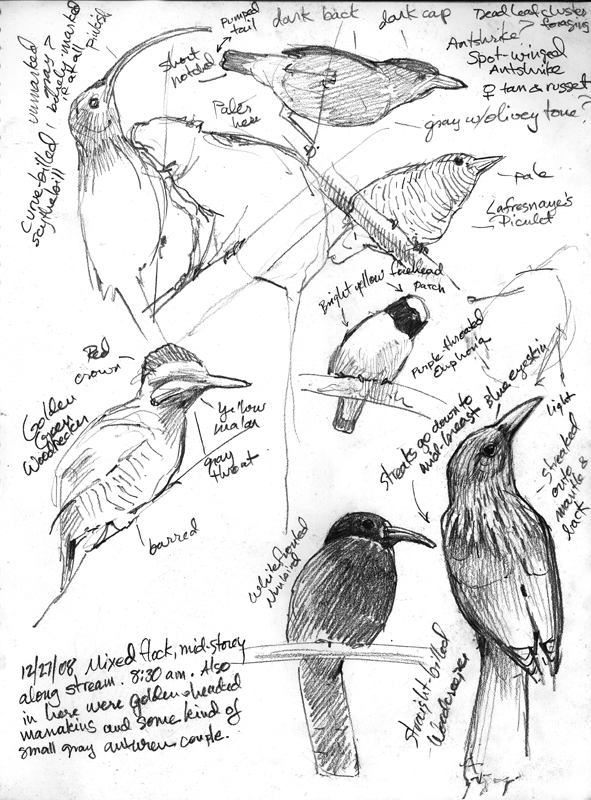 unmarked
gray?
barely marked
if at all
Pinkish
Curve-billed
scythebill
Pumped
tail
short
notched
dark back
dark cap
Dead leaf cluster
foraging
Antshrike?
Spot-winged
Antshrike
♀ tan & russet
gray w/olivey tone?
Paler
here
pale
Lafresnaye's
Piculet
Bright yellow forehead
patch
Purple-throated
Euphonia
Red
crown
Golden
Green
Woodpecker
yellow
malar
gray
throat
barred
Streaks go down to
mid-breast
Blue eyeskin
light
streaked
onto
mantle &
back
White fronted
Nunbird
Straight-billed
Woodcreeper
12/27/08 Mixed flock, mid-storey
along stream. 8:30 am. Also
in here were golden-headed
manakins and some kind of
small gray antwren couple.